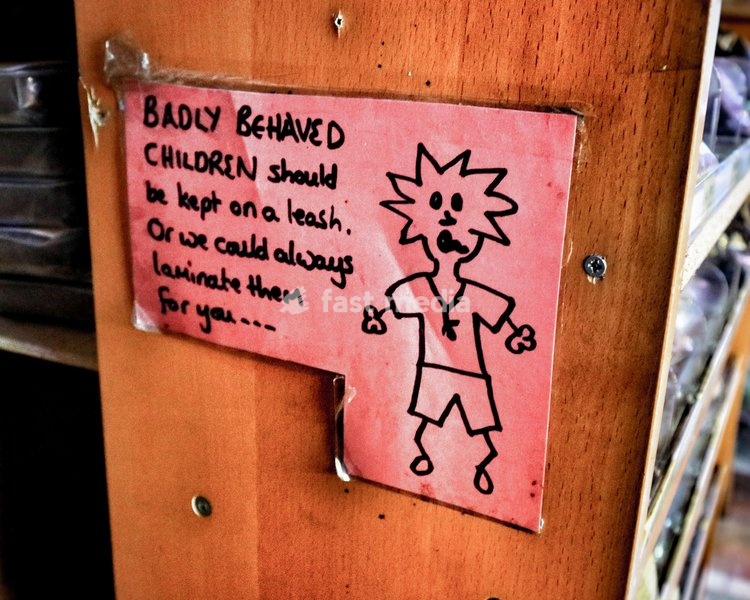 BADLY BEHAVED
CHILDREN should
be kept on a leash.
Or we could always
laminate them
for you....
fast media